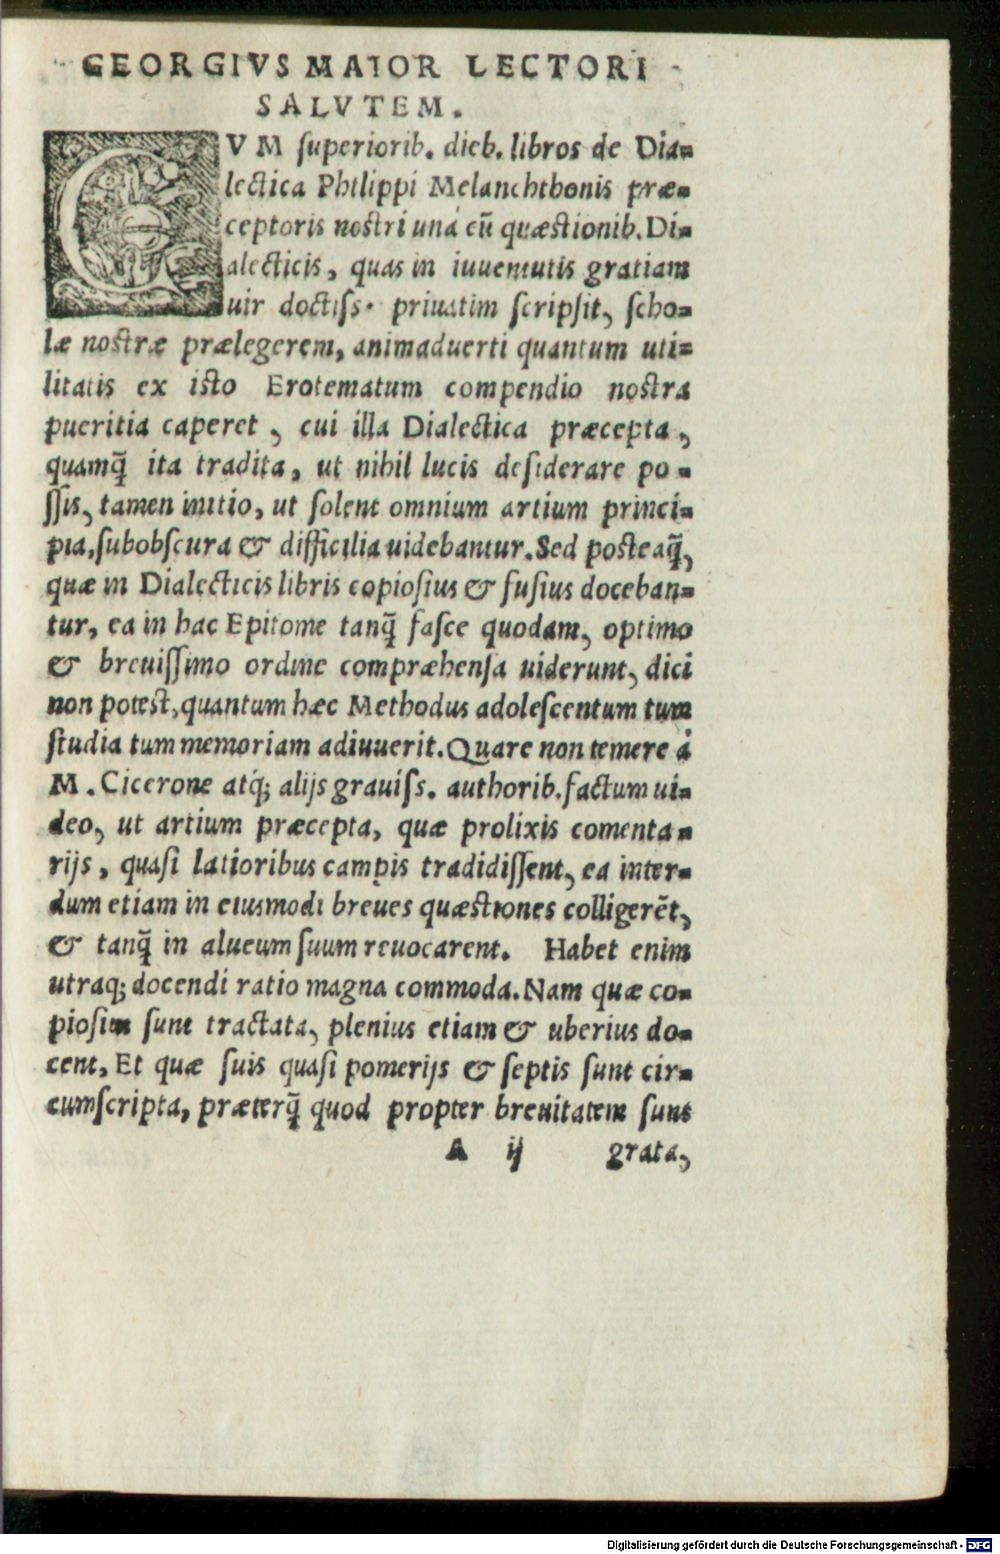 GEORGIVS MAIOR LECTORI
SALVTEM.
CVM superiorib. dieb. libros de Dia-
lectica Philippi Melanchthonis præ-
ceptoris nostri unà cũ quæstionib. Di-
alecticis, quas in iuuentutis gratiam
uir doctiss. priuatim scripsit, scho-
læ nostræ prælegerem, animaduerti quantum uti-
litatis ex isto Erotematum compendio nostra
pueritia caperet, cui illa Dialectica præcepta,
quamq̃ ita tradita, ut nihil lucis desiderare po-
ssis, tamen initio, ut solent omnium artium princi-
pia, subobscura & difficilia uidebantur. Sed posteaq̃,
quæ in Dialecticis libris copiosius & fusius doceban-
tur, ea in hac Epitome tanq̃ fasce quodam, optimo
& breuissimo ordine compræhensa uiderunt, dici
non potest, quantum hæc Methodus adolescentum tum
studia tum memoriam adiuuerit. Quare non temere à
M. Cicerone atq; alijs grauiss. authorib. factum ui-
deo, ut artium præcepta, quæ prolixis comenta-
rijs, quasi latioribus campis tradidissent, ea inter-
dum etiam in eiusmodi breues quæstiones colligerẽt,
& tanq̃ in alueum suum reuocarent. Habet enim
utraq; docendi ratio magna commoda. Nam quæ co-
piosius sunt tractata, plenius etiam & uberius do-
cent, Et quæ suis quasi pomerijs & septis sunt cir-
cumscripta, præterq̃ quod propter breuitatem sunt
A ij grata,
Digitalisierung gefördert durch die Deutsche Forschungsgemeinschaft - DFG